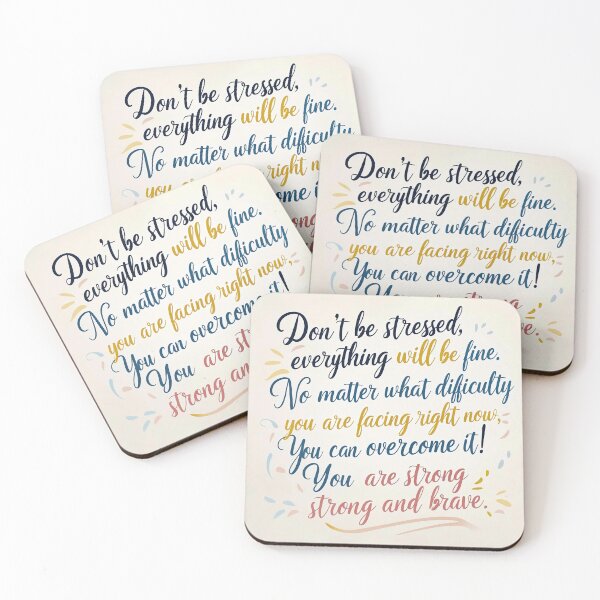 Don't be stressed,
everything will be fine.
No matter what difficulty
you are facing right now
Don't be stressed,
everything will be fine.
No matter what difficulty
you are facing right now,
You can overcome it!
You are strong
Don't be stressed,
everything will be fine.
No matter what difficulty
you are facing right now,
You can overcome it!
You are
strong and
Don't be stressed,
everything will be fine.
No matter what difficulty
you are facing right now,
You can overcome it!
You are strong
strong and brave.